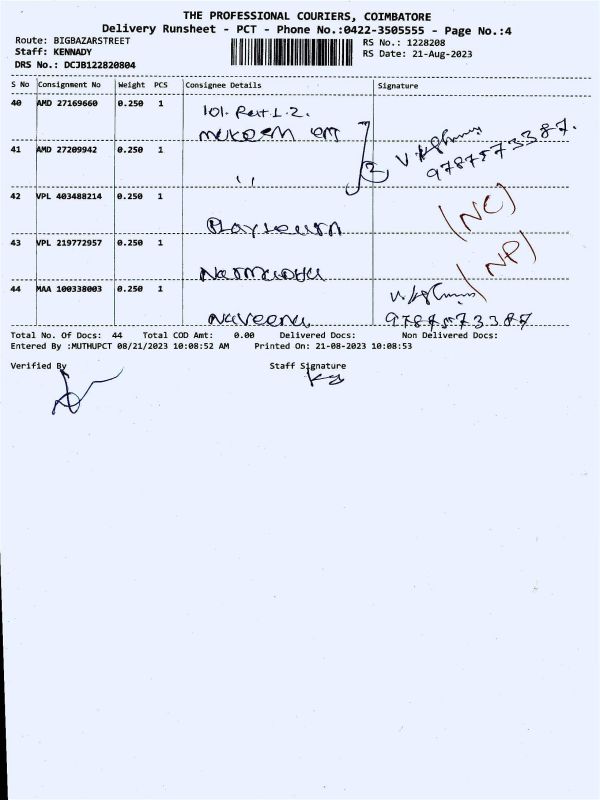 THE PROFESSIONAL COURIERS, COIMBATORE
Delivery Runsheet - PCT - Phone No.:0422-3505555 - Page No.:4
Route: BIGBAZARSTREET
Staff: KENNADY
DRS No.: DCJB122820804
RS No.: 1228208
RS Date: 21-Aug-2023
S No Consignment No Weight PCS Consignee Details Signature
40 AMD 27169660 0.250 1 101.
41 AMD 27209942 0.250 1 " 2 9787573387.
42 VPL 403488214 0.250 1 (NC)
43 VPL 219772957 0.250 1 (NP)
44 MAA 100338003 0.250 1 Naveena 9787573387
Total No. Of Docs: 44 Total COD Amt: 0.00 Delivered Docs: Non Delivered Docs:
Entered By :MUTHUPCT 08/21/2023 10:08:52 AM Printed On: 21-08-2023 10:08:53
Verified By Staff Signature